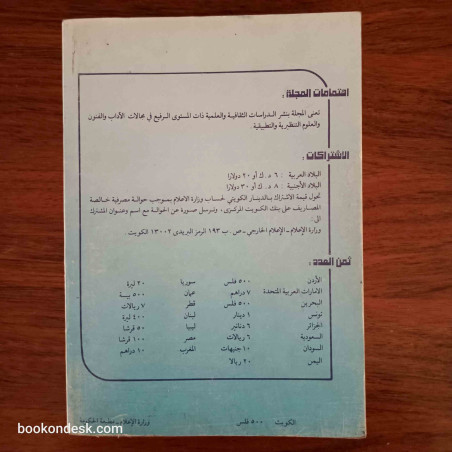 اهتمامات المجلة :
تعنى المجلة بنشر الدراسات الثقافية والعلمية ذات المستوى الرفيع في مجالات الآداب والفنون
والعلوم النظرية والتطبيقية
الاشتراكات :
البلاد العربية : ٦ د.ك أو ٢٠ دولارا
البلاد الأجنبية : ٨ د.ك أو ٣٠ دولارا
تحول قيمة الاشتراك بالدينار الكويتي لحساب وزارة الاعلام بموجب حوالة مصرفية خالصة
المصاريف على بنك الكويت المركزي، وترسل صورة عن الحوالة مع اسم وعنوان المشترك
الى :
وزارة الإعلام - الإعلام الخارجي - ص.ب ١٩٣ الرمز البريدي ١٣٠٠٢ الكويت
ثمن العدد :
الأردن ٥٠٠ فلس سوريا ٢٠ ليرة
الامارات العربية المتحدة ٧ دراهم عمان ٥٠٠ بيسة
البحرين ٥٠٠ فلس قطر ٧ ريالات
تونس ١ دينار لبنان ٤٠٠ ليرة
الجزائر ٦ دنانير ليبيا ٥٠ قرشا
السعودية ٦ ريالات مصر ١٠٠ قرشا
السودان ١٠ جنيهات المغرب ١٠ دراهم
اليمن ٢٠ ريالا
الكويت ٥٠٠ فلس وزارة الإعلام - مطبعة الحكومة
bookondesk.com